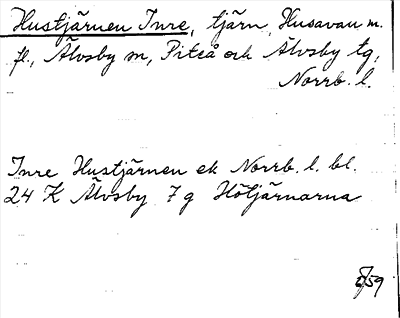 Hustjärnen Inre, tjärn, Husavan m.
fl., Älvsby sn, Piteå och Älvsby tg,
Norrb. l.
Inre Hustjärnen ek Norrb. l. bl.
24 K Älvsby 7 g Hötjärnarna
59